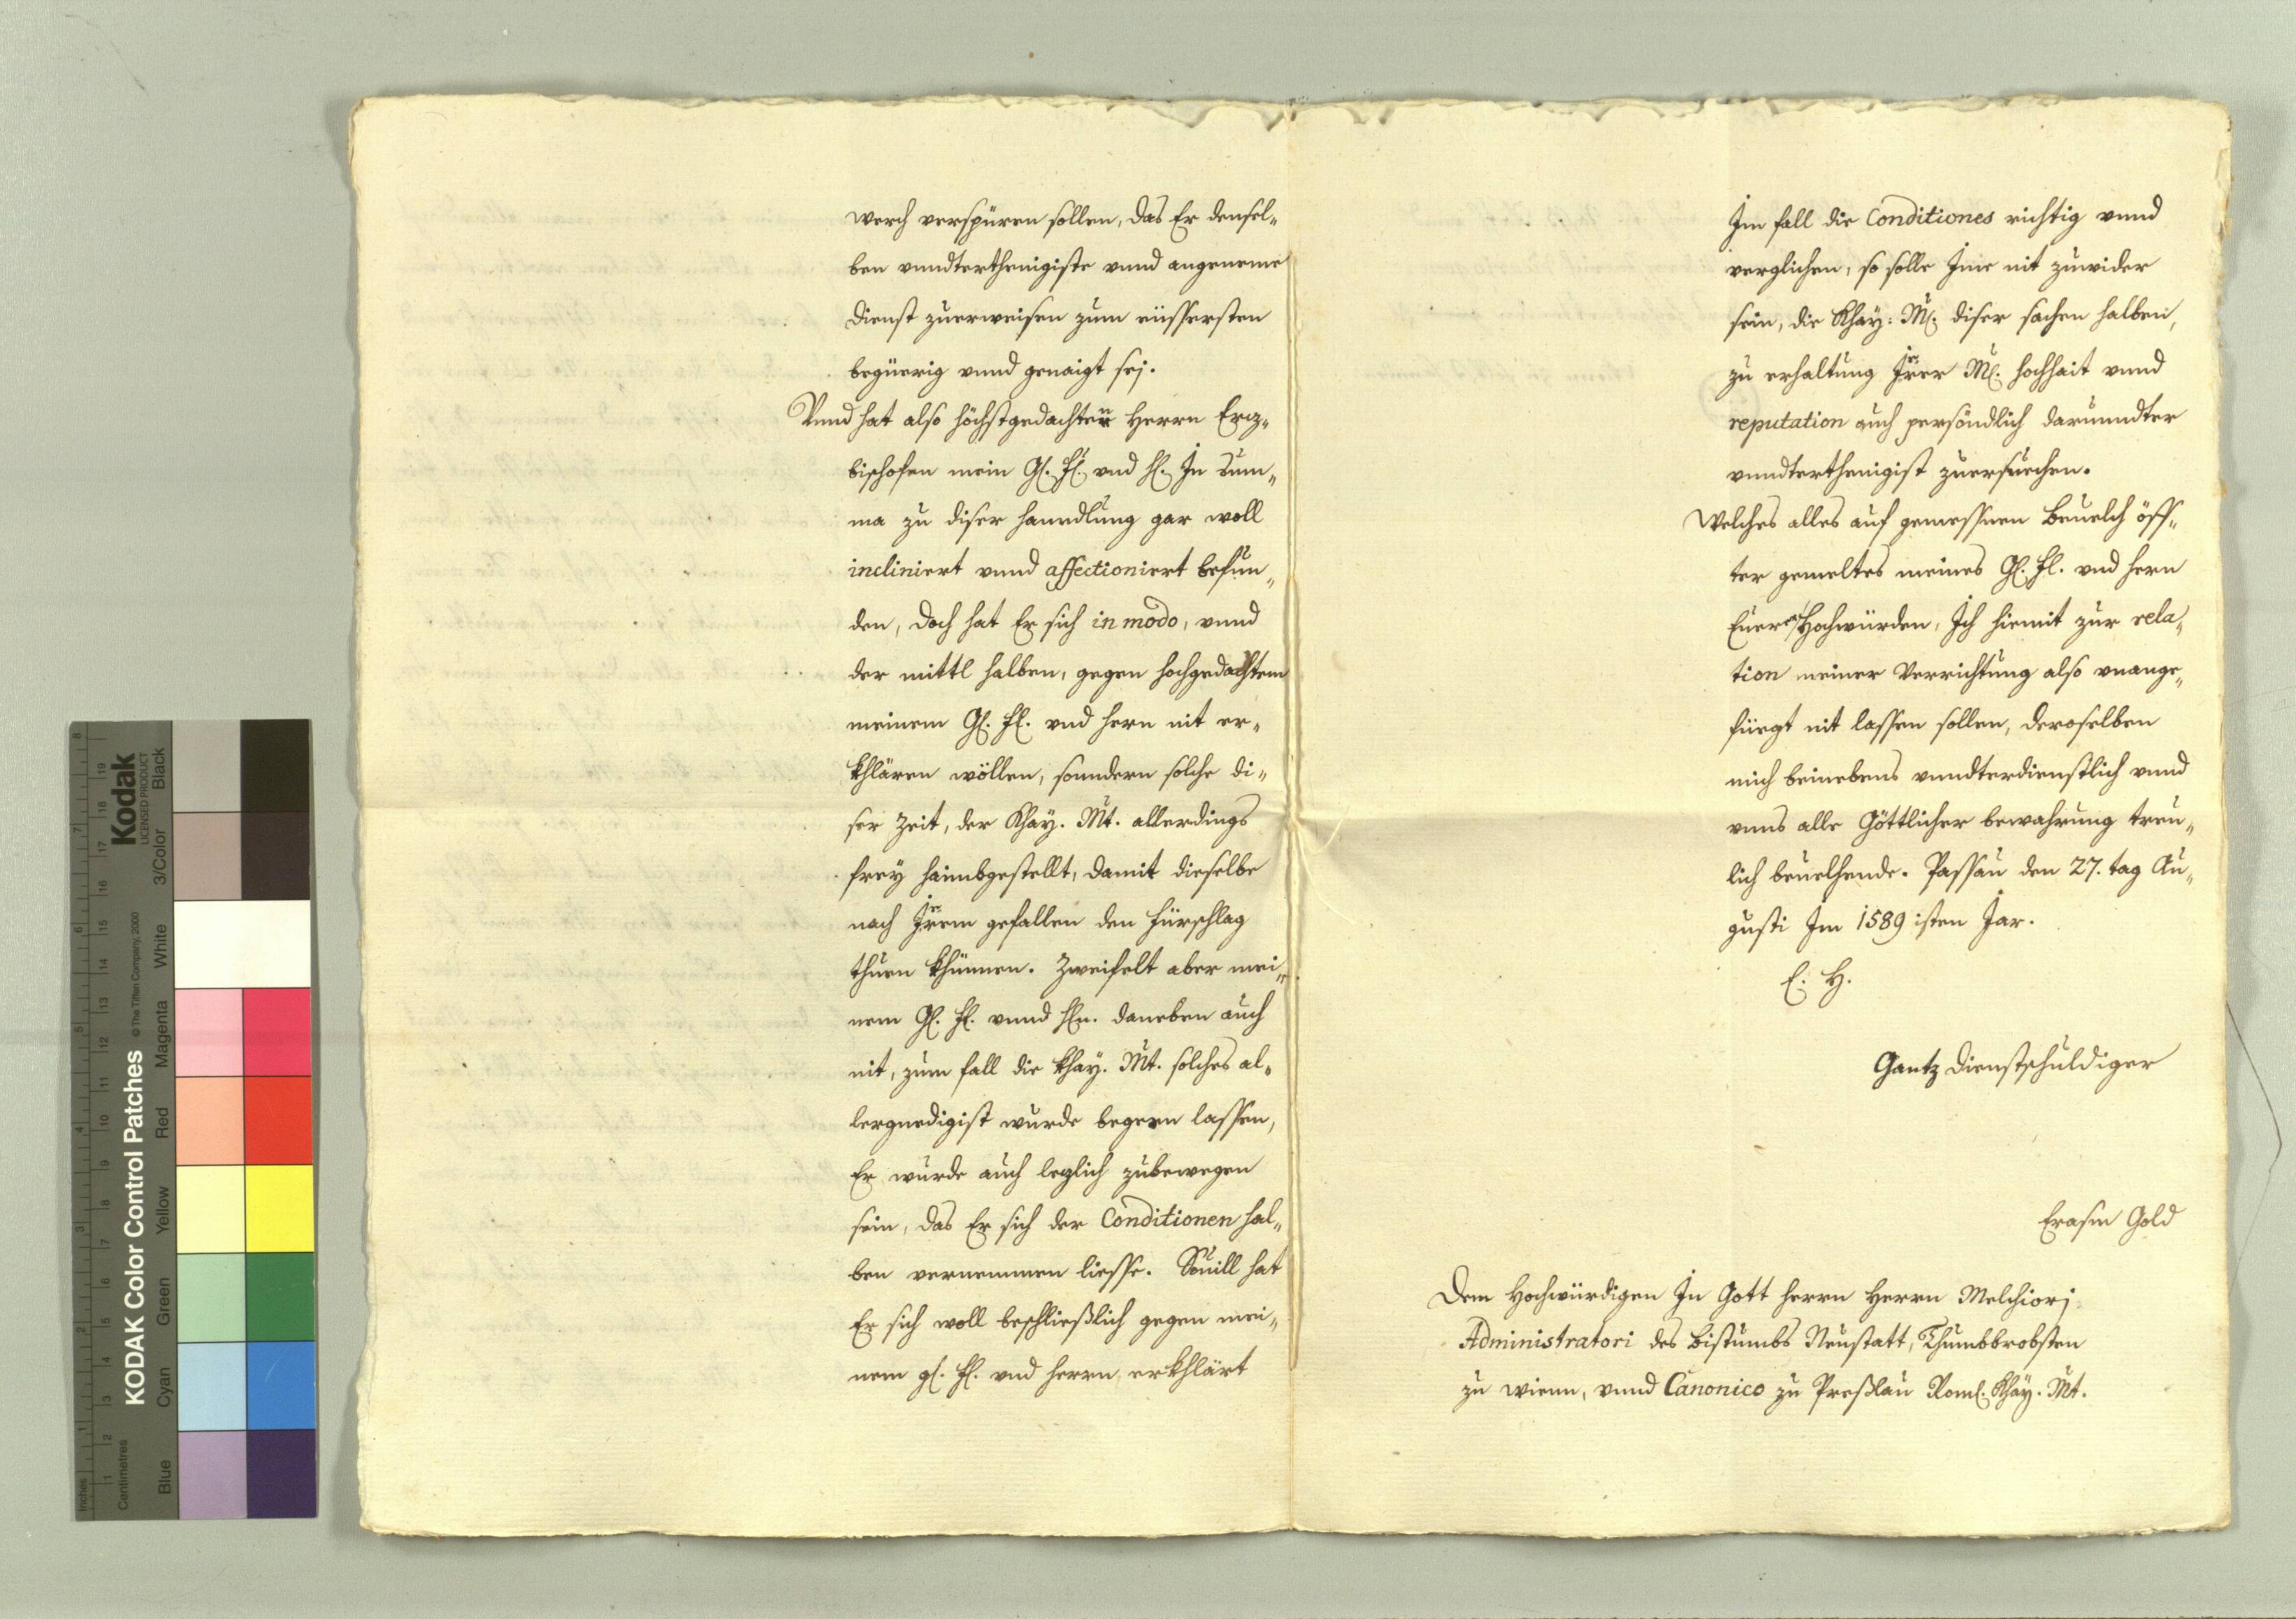 werch verspüren sollen, das Er densel-
ben vnndterthenigiste vnnd angeneme
dienst zuerweisen zum eüssersten
begüerig vnnd genaigt sej.
Vnnd hat also höchstgedachten Herrn Erz-
bischofen mein G. F. vnd H. In Sum-
ma zu diser hanndlung gar woll
incliniert vnnd affectioniert befun-
den, doch hat Er sich in modo, vnnd
der mittl halben, gegen hochgedachtem
meinem G. F. vnd Hern nit er-
khlären wöllen, sonndern solche di-
ser Zeit, der Khay. Mt. allerdings
frey haimbgestellt, damit dieselbe
nach Jrem gefallen den fürschlag
thuen khünnen. Zweifelt aber mei-
nem G. F. vnnd Hn. daneben auch
nit, zum fall die Khay. Mt. solches al-
lergnedigist wurde begern lassen,
Er wurde auch lezlich zubewegen
sein, das Er sich der Conditionen hal-
ben vernemmen liesse. Souill hat
Er sich woll beschließlich gegen mei-
nem g. F. vnd Herrn erkhlärt
Im fall die Conditiones richtig vnnd
verglichen, so solle Ime nit zuwider
sein, die Khay: M. diser sachen halben,
zu erhaltung Jrer M. hochhait vnnd
reputation auch persöndlich darunndter
vnndterthenigist zuersuechen.
Welches alles auf gemessnen Beuelch öff-
ter gemeltes meines G. F. vnd Hern
Euer Hochwürden, Ich hiemit zur rela-
tion meiner Verrichtung also vnange-
füegt nit lassen sollen, deroselben
mich beinebens vnndterdienstlich vnnd
vnns alle Göttlicher bewahrung treu-
lich beuelhende. Passau den 27. tag Au-
gusti Im 1589 isten Jar.
E. H.
Gantz dienstschuldiger
Erasm Gold
Dem Hochwürdigen In Gott Herrn Herrn Melchiorj
Administratori des Bistumbs Neustatt, Thumbbrobsten
zu wienn, vnnd Canonico zu Preßlau Rom. Khay. Mt.
KODAK Color Control Patches
© The Tiffen Company, 2000
Kodak
LICENSED PRODUCT
Inches
Centimetres
Blue
Cyan
Green
Yellow
Red
Magenta
White
3/Color
Black